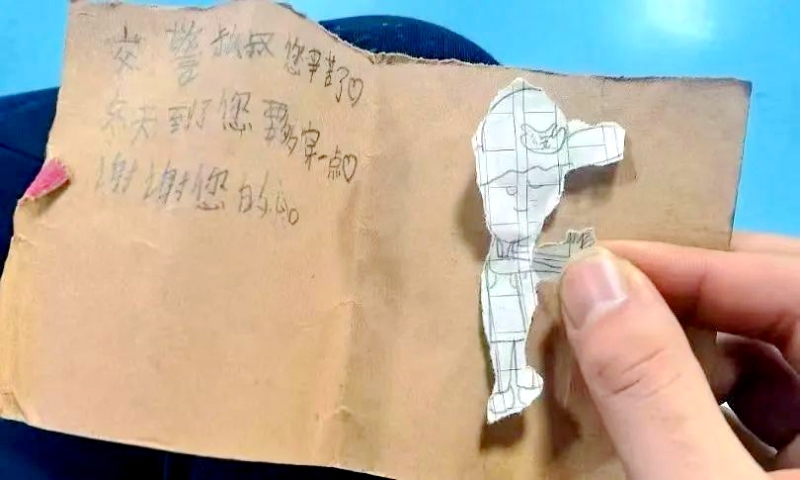 交警叔叔您辛苦了♡
冬天到了您要多穿一点♡
谢谢您的心。